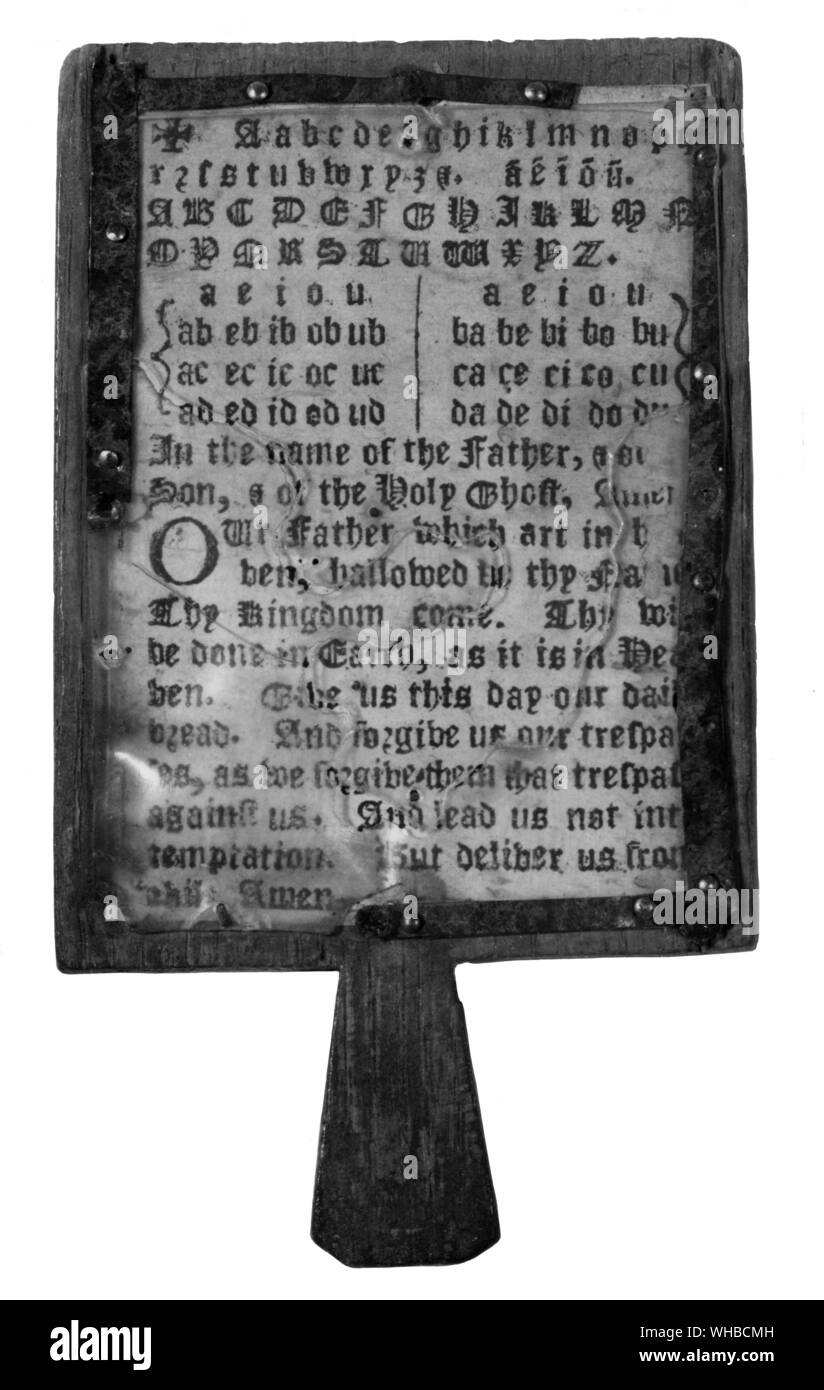 ✠ A a b c d e f g h i k l m n o p
r ꝛ ſ s t u v w x y z &. ã ẽ ĩ õ ũ.
A B C D E F G H I K L M N
O P Q R S T U W X Y Z.
a e i o u a e i o u
ab eb ib ob ub ba be bi bo bu
ac ec ic oc uc ca ce ci co cu
ad ed id od ud da de di do du
In the name of the Father, &
Son, & of the Holy Ghoſt, Amen
OUr Father which art in
ven, hallowed thy
Thy Kingdom come. Thy
be done in Earth, as it is in Hea
ven. Give us this day our dail
bread. And forgive us our treſpa
ſes, as we forgive them that treſpaſ
againſt us. And lead us not int
temptation. But deliver us from
Amen
alamy
Image ID: WHBCMH
www.alamy.com